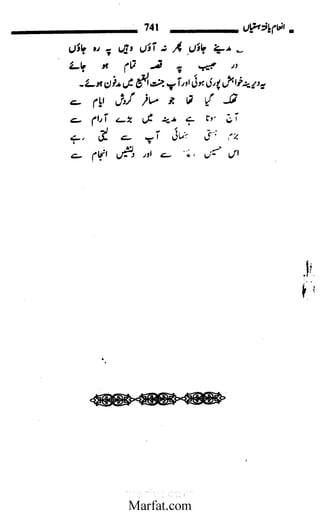 انعام یافتہ ہستیاں 741
مدینے جاؤں پھر نہ آؤں وہیں پہ رہ جاؤں
در حبیب پہ قصہ تمام ہو جائے
یہ دیرینہ خواہش پوری ہوئی اور آپ جنت البقیع میں مدفون ہوئے۔
تھک گیا تھا جو مسافر گردش ایام سے
آج سوتا ہے مدینہ میں بڑے آرام سے
بزم ہستی آپ سے لیتی رہے
اس حسیں سے اور دلنشیں انجام سے
Marfat.com